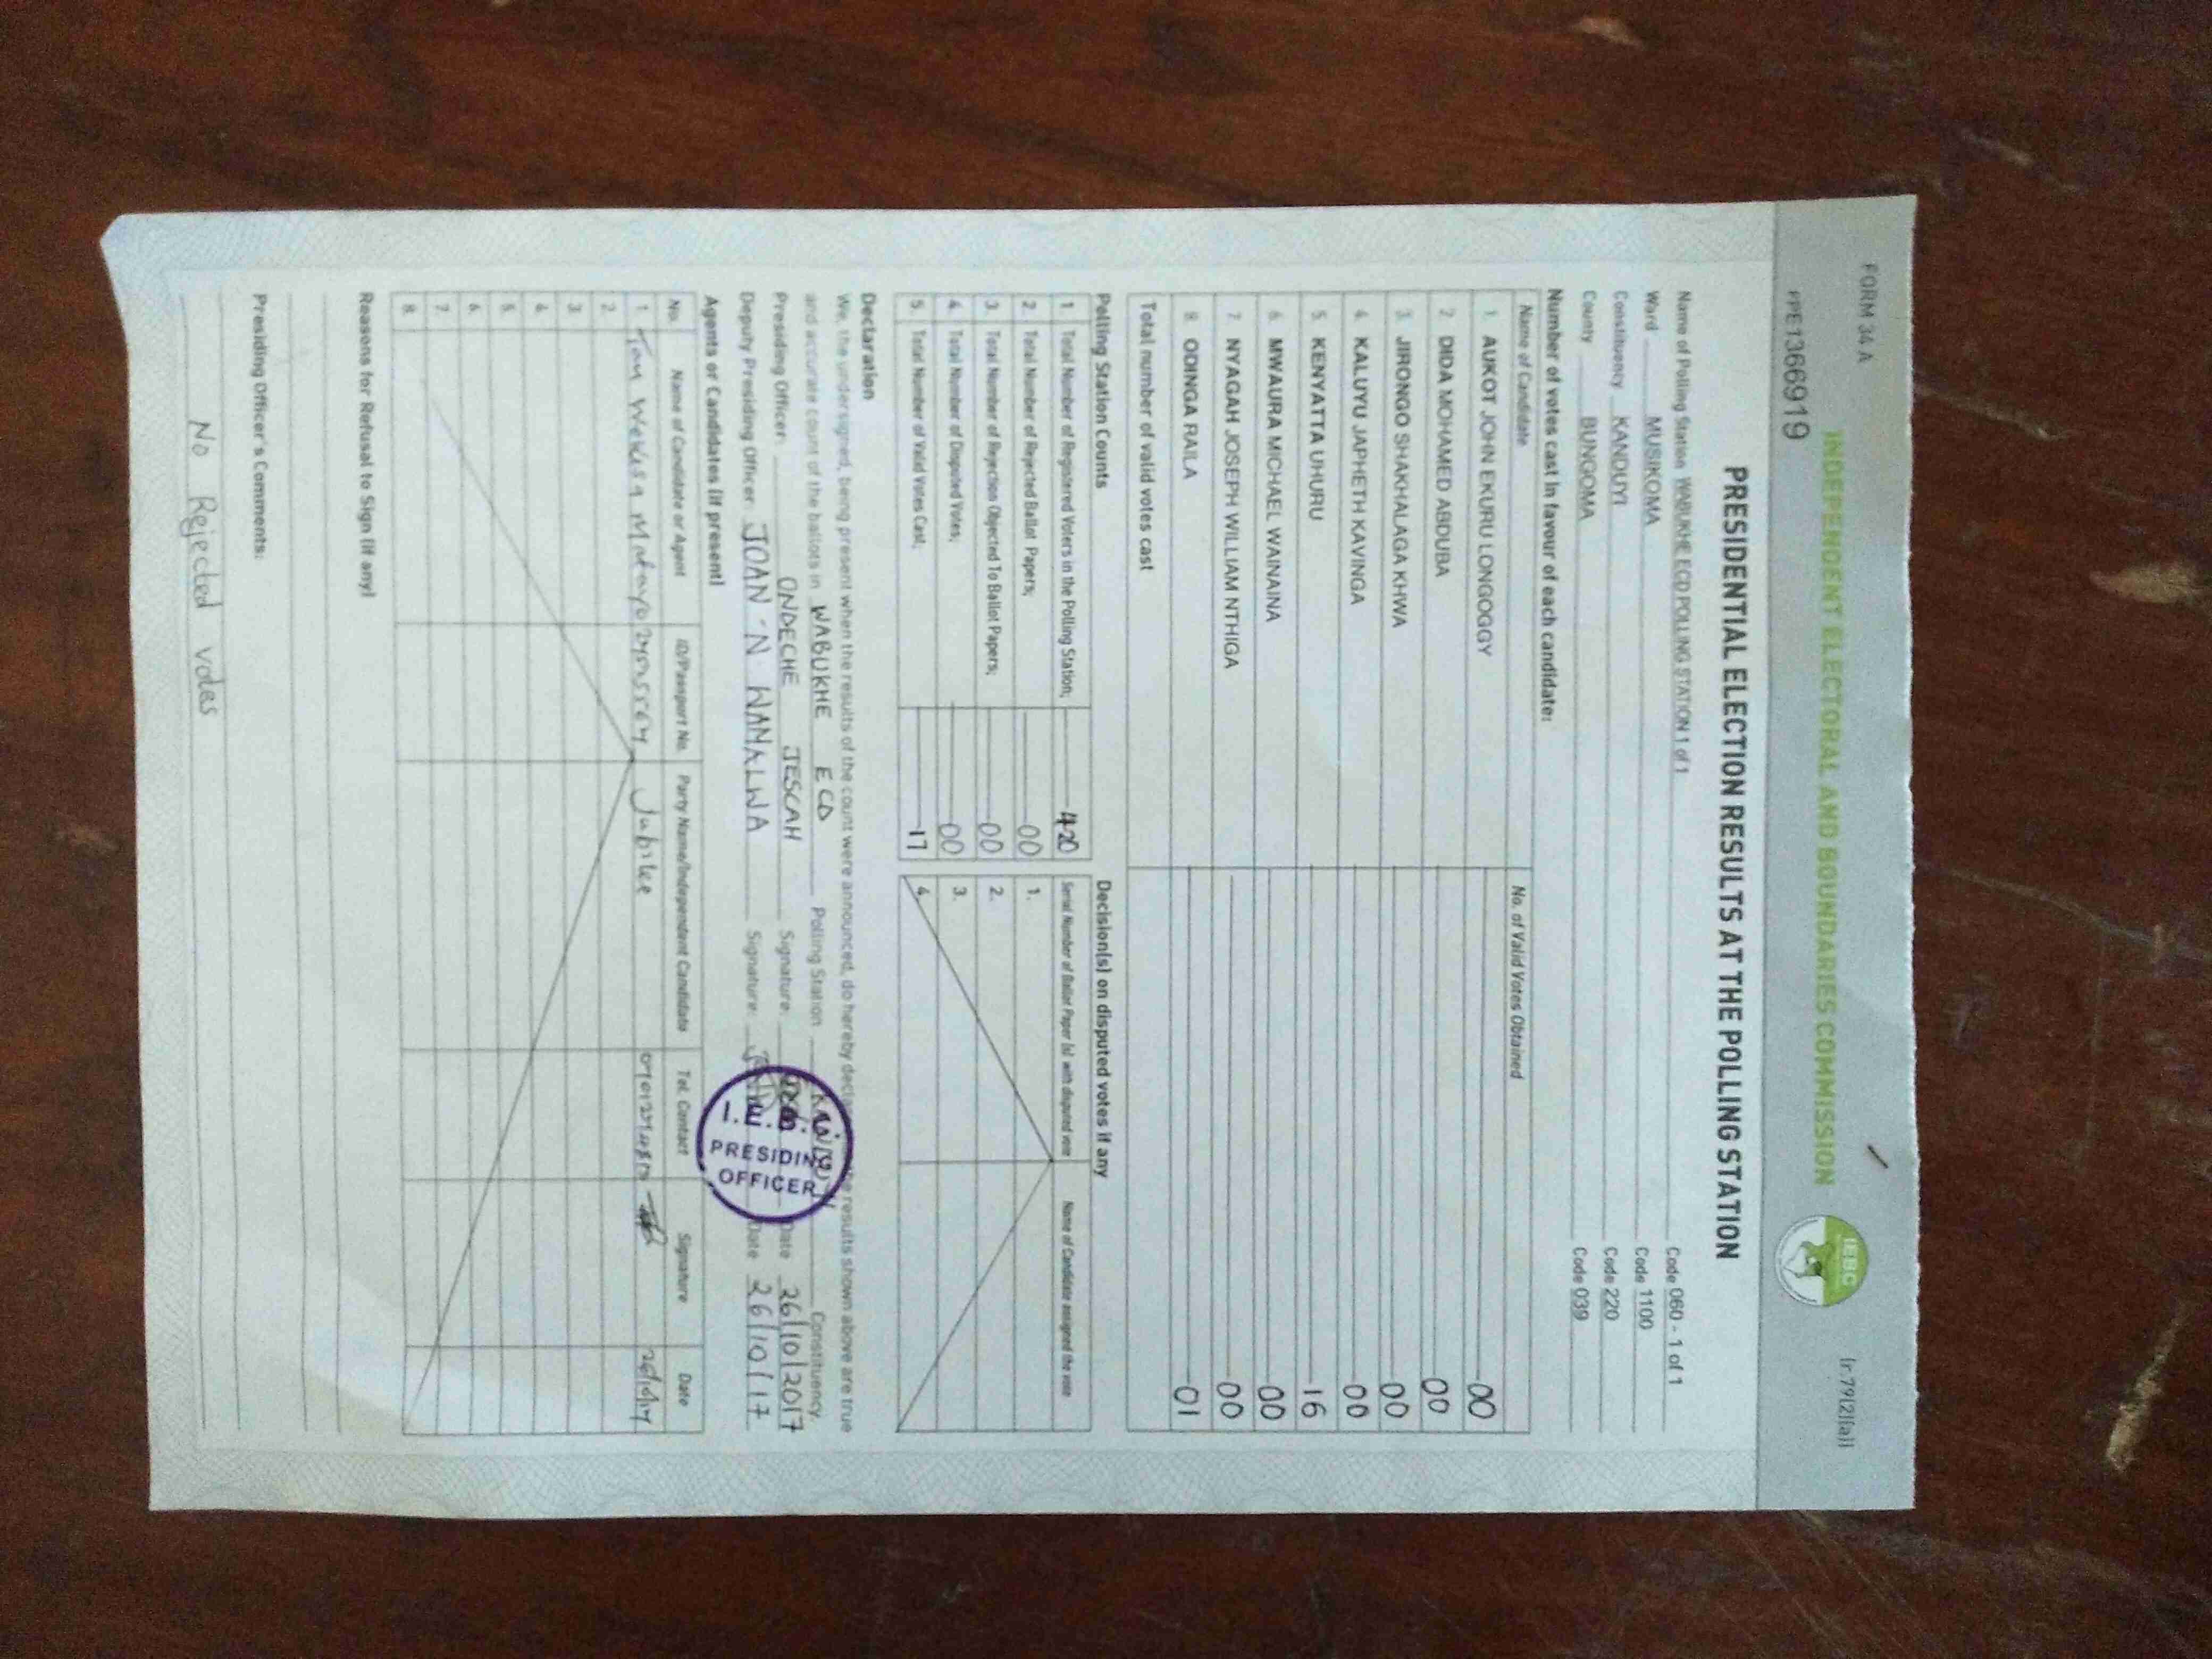 FORM 34 A
(r.79(2)(a))
INDEPENDENT ELECTORAL AND BOUNDARIES COMMISSION
IEBC
PPE1366919
PRESIDENTIAL ELECTION RESULTS AT THE POLLING STATION
Name of Polling Station WABUKHE ECD POLLING STATION 1 of 1 Code 060 - 1 of 1
Ward MUSIKOMA Code 1100
Constituency KANDUYI Code 220
County BUNGOMA Code 039
Number of votes cast in favour of each candidate:
Name of Candidate No. of Valid Votes Obtained
1. AUKOT JOHN EKURU LONGOGGY 00
2. DIDA MOHAMED ABDUBA 00
3. JIRONGO SHAKHALAGA KHWA 00
4. KALUYU JAPHETH KAVINGA 00
5. KENYATTA UHURU 16
6. MWAURA MICHAEL WAINAINA 00
7. NYAGAH JOSEPH WILLIAM NTHIGA 00
8. ODINGA RAILA 01
Total number of valid votes cast
Polling Station Counts
1. Total Number of Registered Voters in the Polling Station; 420
2. Total Number of Rejected Ballot Papers; 00
3. Total Number of Rejection Objected To Ballot Papers; 00
4. Total Number of Disputed Votes; 00
5. Total Number of Valid Votes Cast; 17
Decision(s) on disputed votes if any
Serial Number of Ballot Paper (s) with disputed vote Name of Candidate assigned the vote
1.
2.
3.
4.
Declaration
We, the undersigned, being present when the results of the count were announced, do hereby declare the results shown above are true
and accurate count of the ballots in WABUKHE ECD Polling Station Constituency
Presiding Officer ONDECHE JESCAH Signature Date 26/10/2017
Deputy Presiding Officer JOAN N WAMALWA Signature Date 26/10/17
I.E.B.C.
PRESIDING
OFFICER
Agents or Candidates (if present)
No. Name of Candidate or Agent ID/Passport No. Party Name/Independent Candidate Tel. Contact Signature Date
1. Tom Wekesa Jubilee
2.
3.
4.
5.
6.
7.
8.
Reasons for Refusal to Sign (if any)
Presiding Officer's Comments:
No Rejected votes